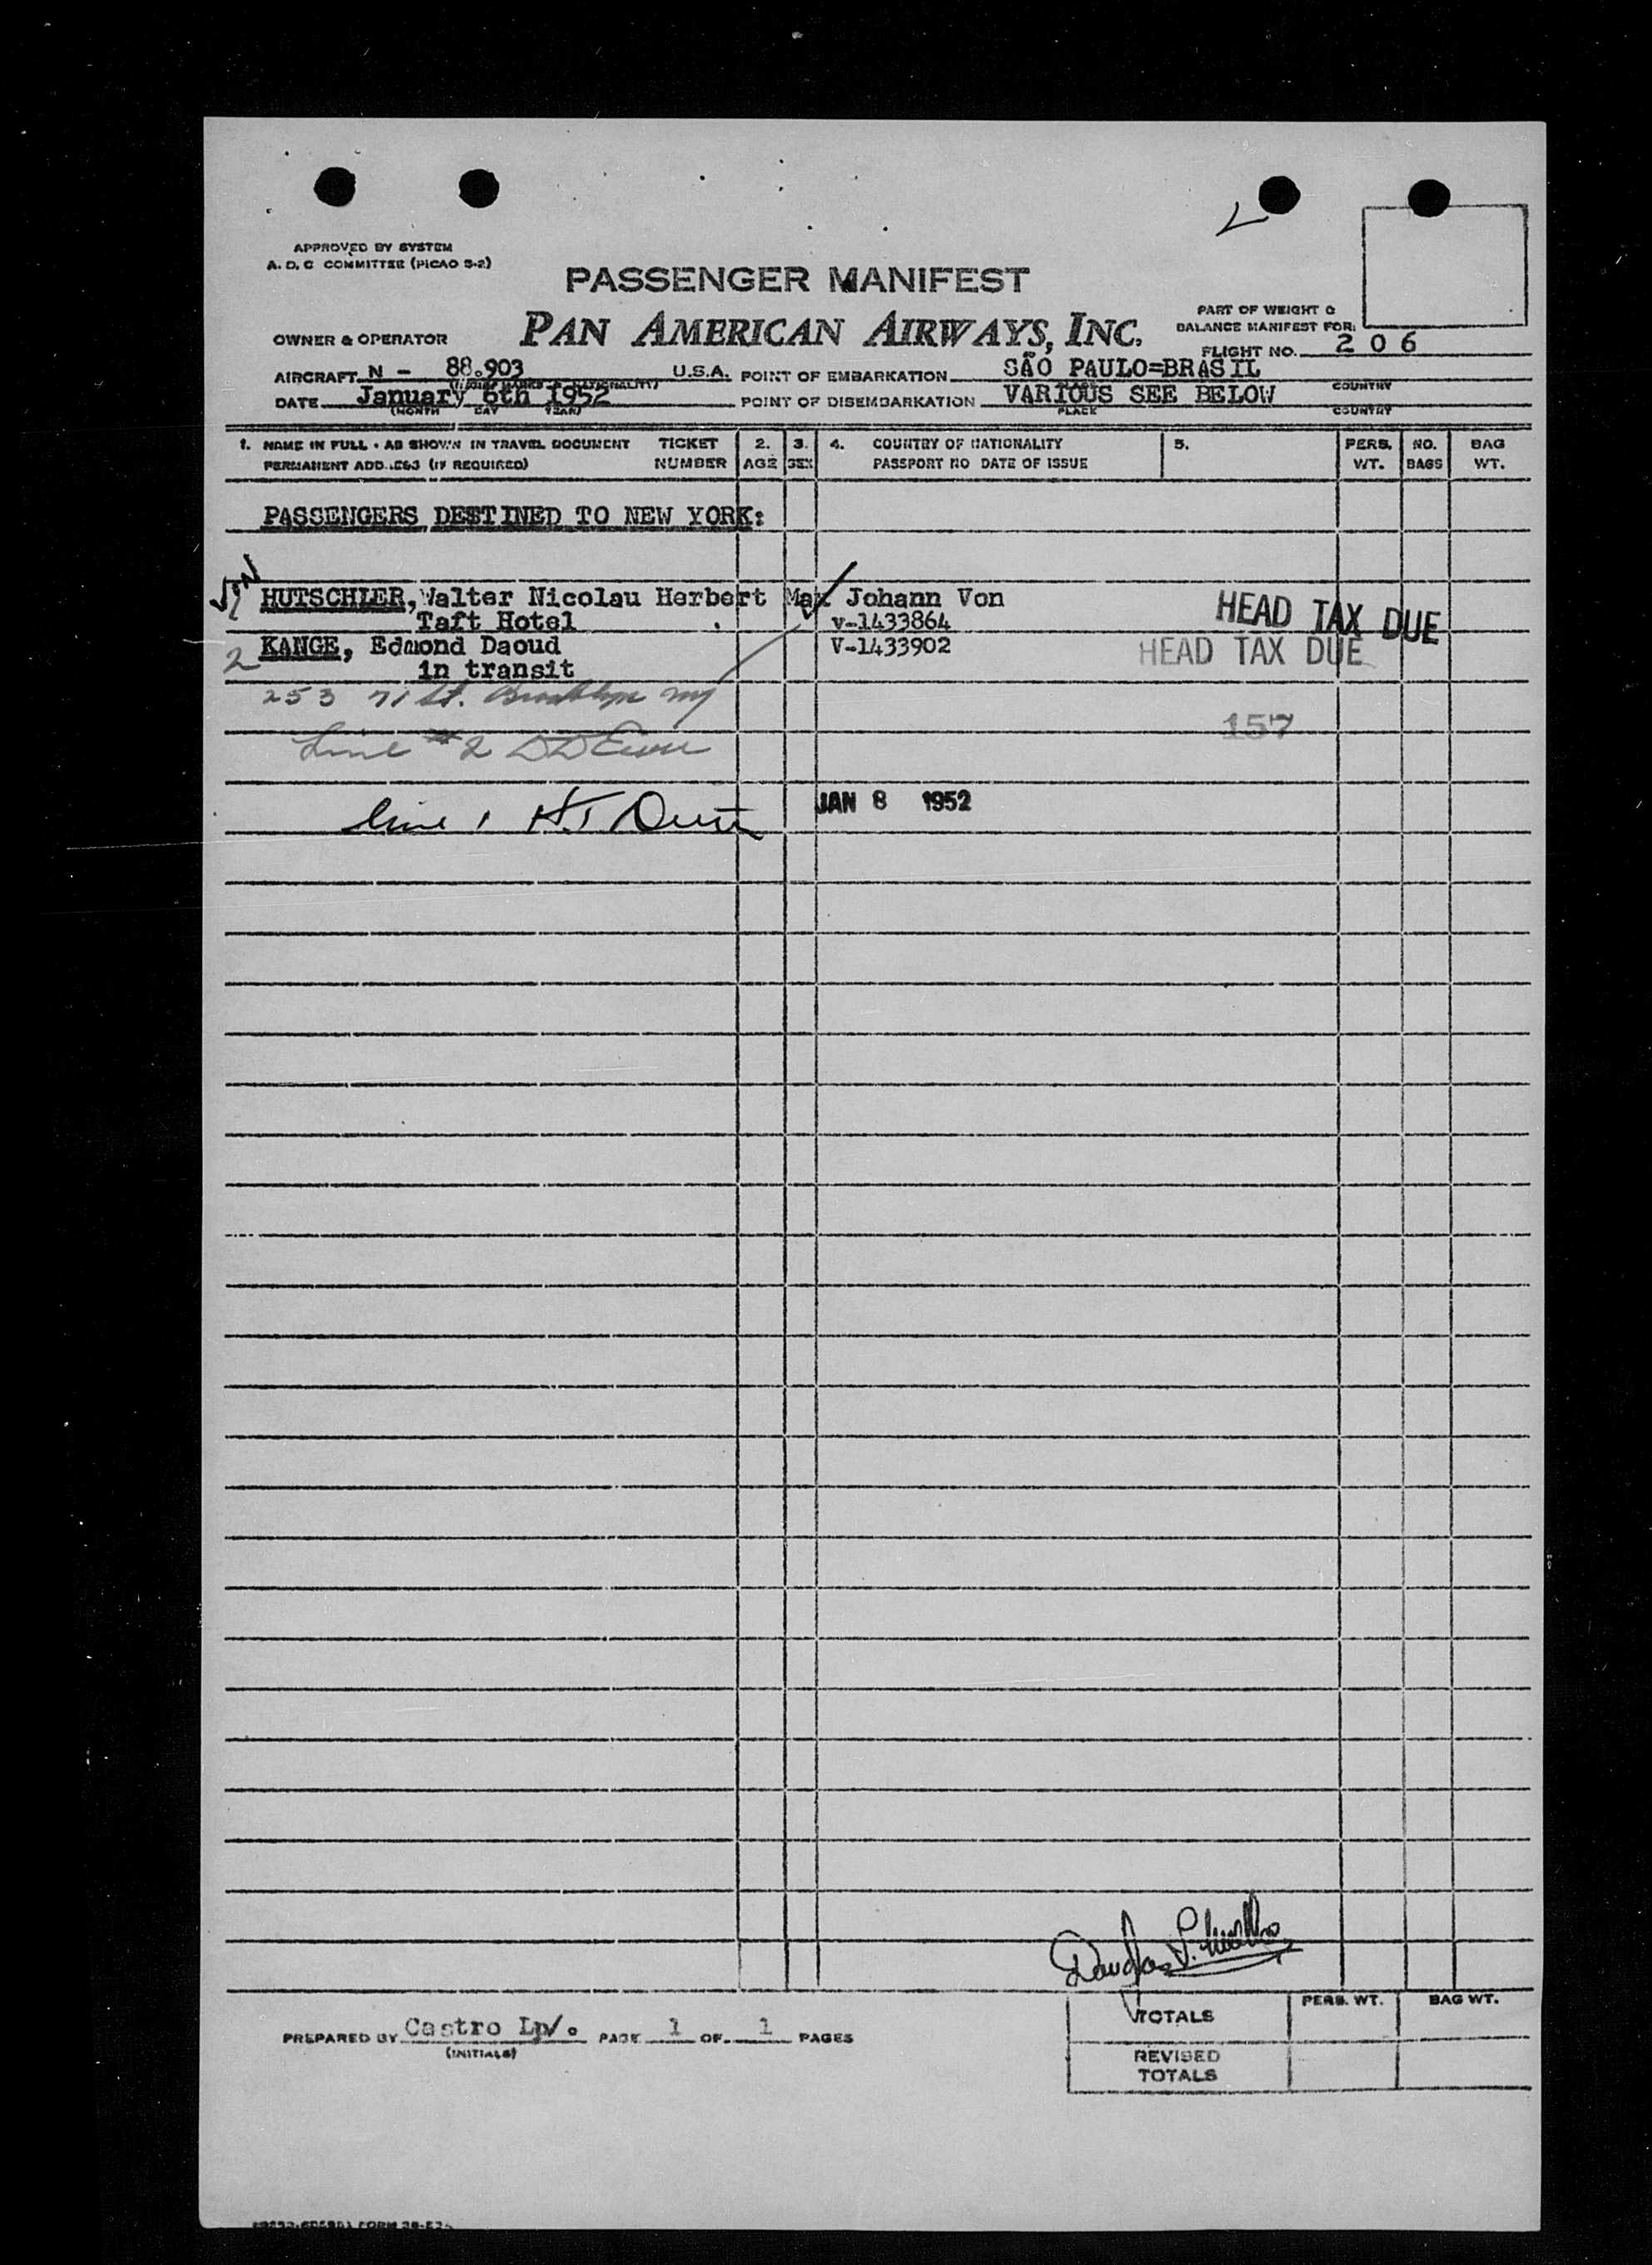 APPROVED BY SYSTEM
A. D. C COMMITTEE (PICAO S-2)
PASSENGER MANIFEST
PART OF WEIGHT &
BALANCE MANIFEST FOR:
OWNER & OPERATOR PAN AMERICAN AIRWAYS, INC.
FLIGHT NO. 206
AIRCRAFT N - 88.903 U.S.A. POINT OF EMBARKATION SÃO PAULO=BRASIL
COUNTRY
DATE January 6th 1952 POINT OF DISEMBARKATION VARIOUS SEE BELOW
(MONTH DAY YEAR) PLACE COUNTRY
1. NAME IN FULL - AS SHOWN IN TRAVEL DOCUMENT TICKET 2. 3. 4. COUNTRY OF NATIONALITY 5. PERS. NO. BAG
PERMANENT ADDRESS (IF REQUIRED) NUMBER AGE SEX PASSPORT NO DATE OF ISSUE WT. BAGS WT.
PASSENGERS DESTINED TO NEW YORK:
HUTSCHLER, Walter Nicolau Herbert Max Johann Von
Taft Hotel v-1433864 HEAD TAX DUE
2 KANGE, Edmond Daoud V-1433902 HEAD TAX DUE
in transit
253 71 St. Brooklyn NY
157
Line #2
JAN 8 1952
Line 1
PREPARED BY Castro PAGE 1 OF 1 PAGES
(INITIALS)
PERS. WT. BAG WT.
TOTALS
REVISED
TOTALS